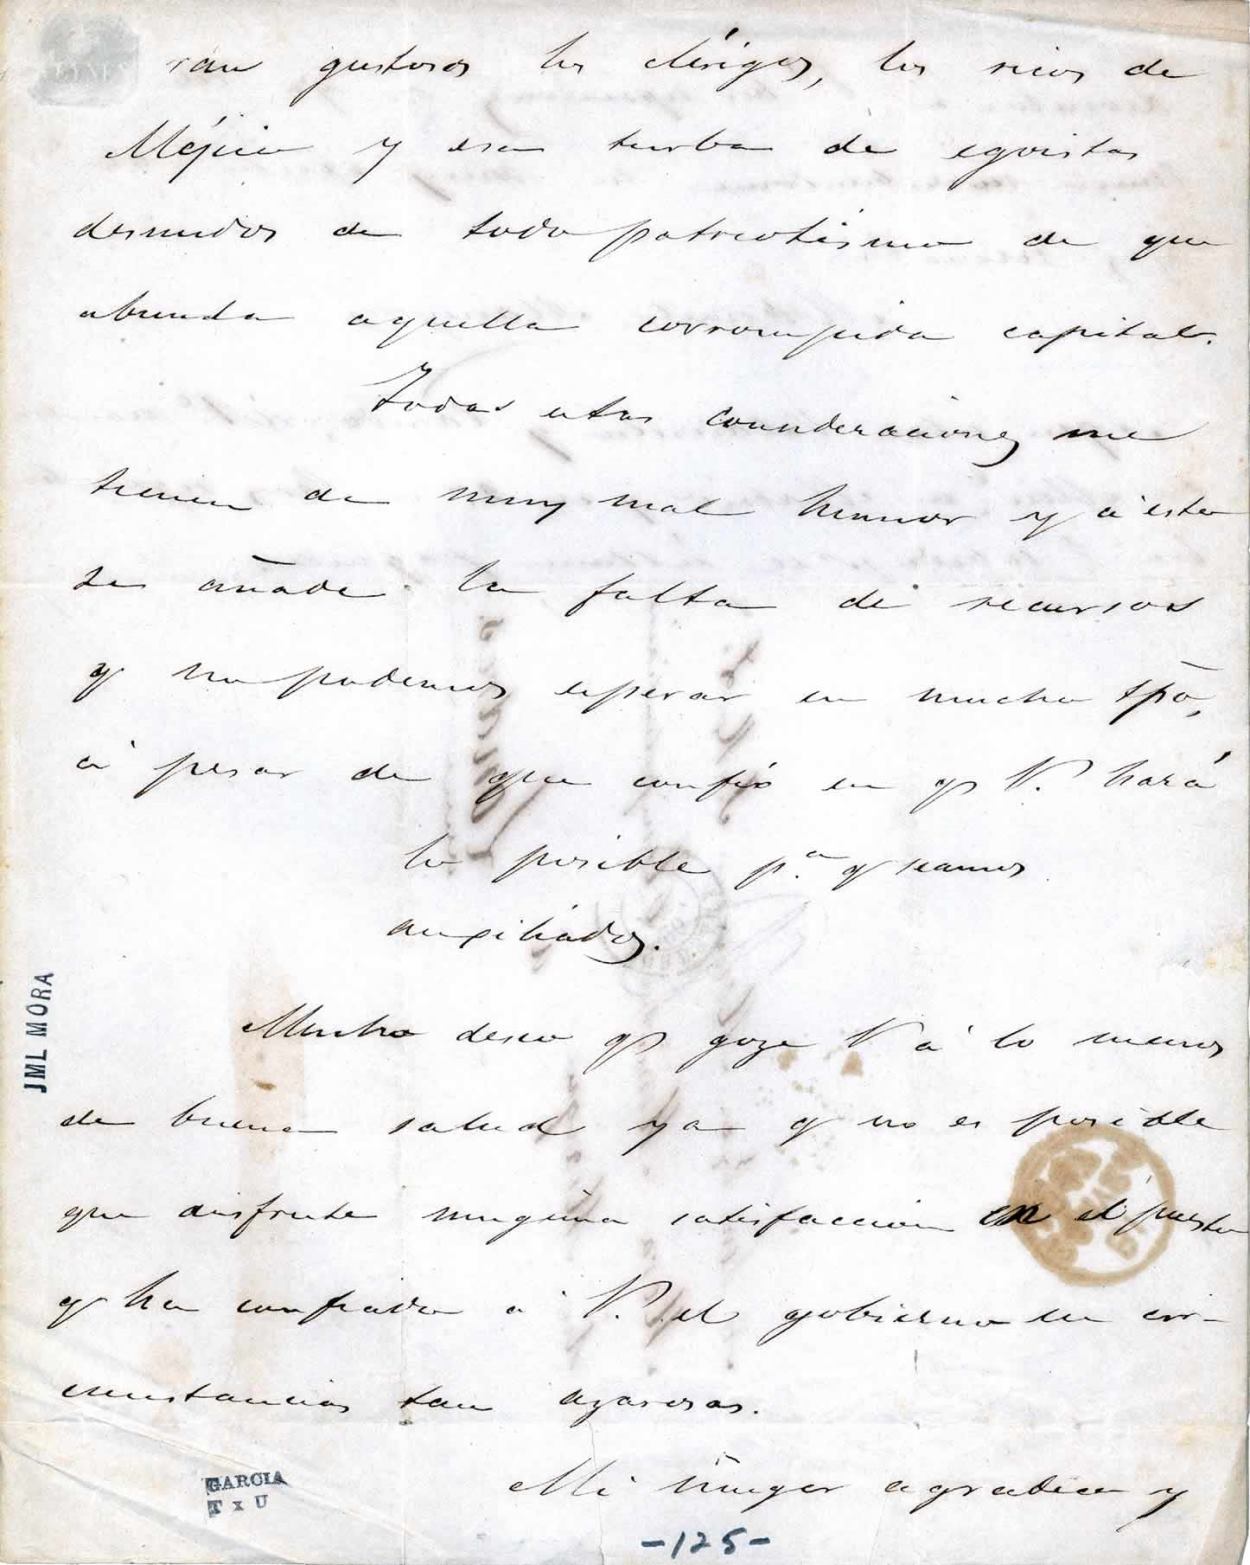 ran gustosos los clérigos, los ricos de
Méjico y esa turba de egoistas
desnudos de todo patriotismo de que
abunda aquella corrompida capital.
Todas estas consideraciones me
tienen de muy mal humor y á esto
se añade la falta de recursos
y no podemos esperar en mucho tpõ,
á pesar de que confio en q V. hará
lo posible p.ª q seamos
auxiliados.
Mucho deseo q goze V á lo menos
de buena salud ya q no es posible
que disfrute ninguna satisfaccion en el puesto
q ha confiado á V. el gobierno en cir-
cunstancias tan azarosas.
Mi muger agradece y
JML MORA
GARCIA
T x U
-125-